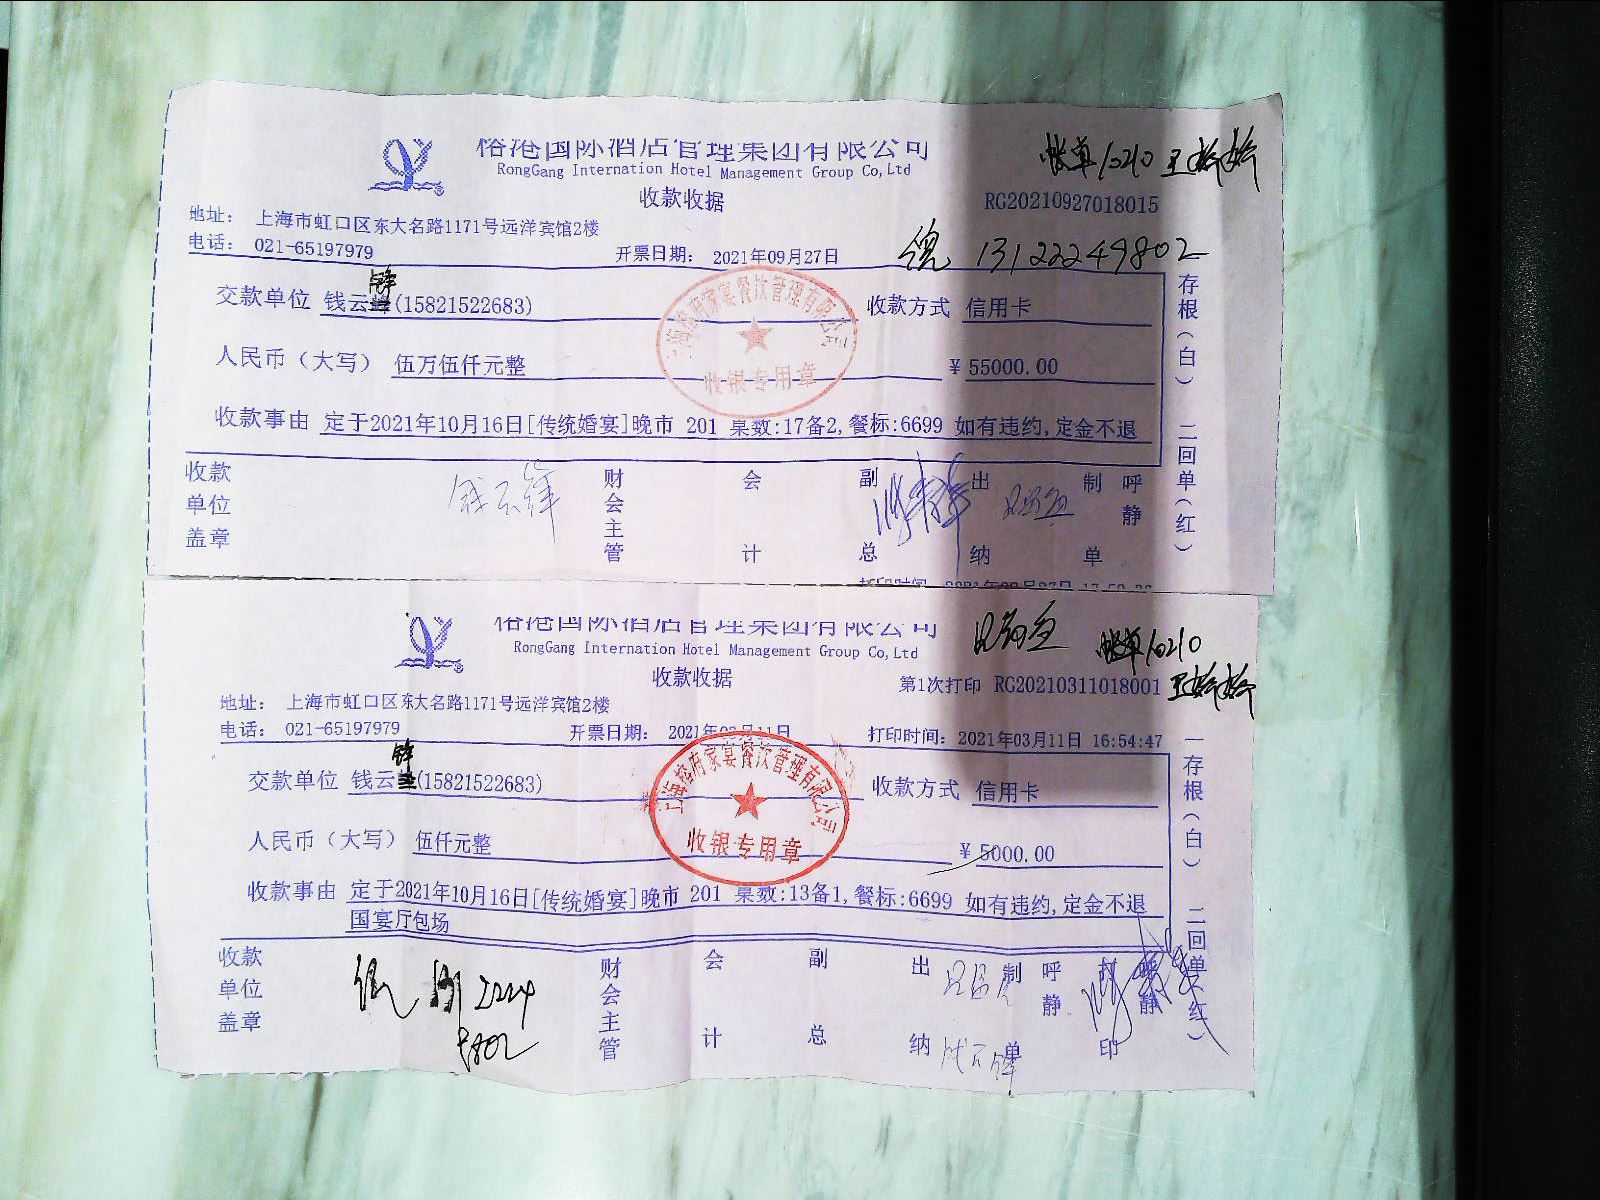 榕港国际酒店管理集团有限公司
RongGang International Hotel Management Group Co,Ltd
帐单10210
收款收据
RG20210927018015
地址： 上海市虹口区东大名路1171号远洋宾馆2楼
电话： 021-65197979
开票日期： 2021年09月27日
倪 13122249802
交款单位 钱云锋(15821522683)
收款方式 信用卡
人民币（大写） 伍万伍仟元整
¥ 55000.00
收款事由 定于2021年10月16日[传统婚宴]晚市 201 桌数:17备2,餐标:6699 如有违约,定金不退
存根(白) 二回单(红)
上海榕府家宴餐饮管理有限公司
收银专用章
收款单位盖章
钱云锋
财会主管
会计
副总
出纳
制单
呼静
打印时间：2021年09月27日
榕港国际酒店管理集团有限公司
RongGang International Hotel Management Group Co,Ltd
帐单10210
收款收据
第1次打印 RG20210311018001
地址： 上海市虹口区东大名路1171号远洋宾馆2楼
电话： 021-65197979
开票日期： 2021年03月11日
打印时间：2021年03月11日 16:54:47
交款单位 钱云锋(15821522683)
收款方式 信用卡
人民币（大写） 伍仟元整
¥ 5000.00
收款事由 定于2021年10月16日[传统婚宴]晚市 201 桌数:13备1,餐标:6699 如有违约,定金不退
国宴厅包场
一存根(白) 二回单(红)
上海榕府家宴餐饮管理有限公司
收银专用章
收款单位盖章
财会主管
会计
副总
出纳
制单
呼静
打印
呼静
钱云锋